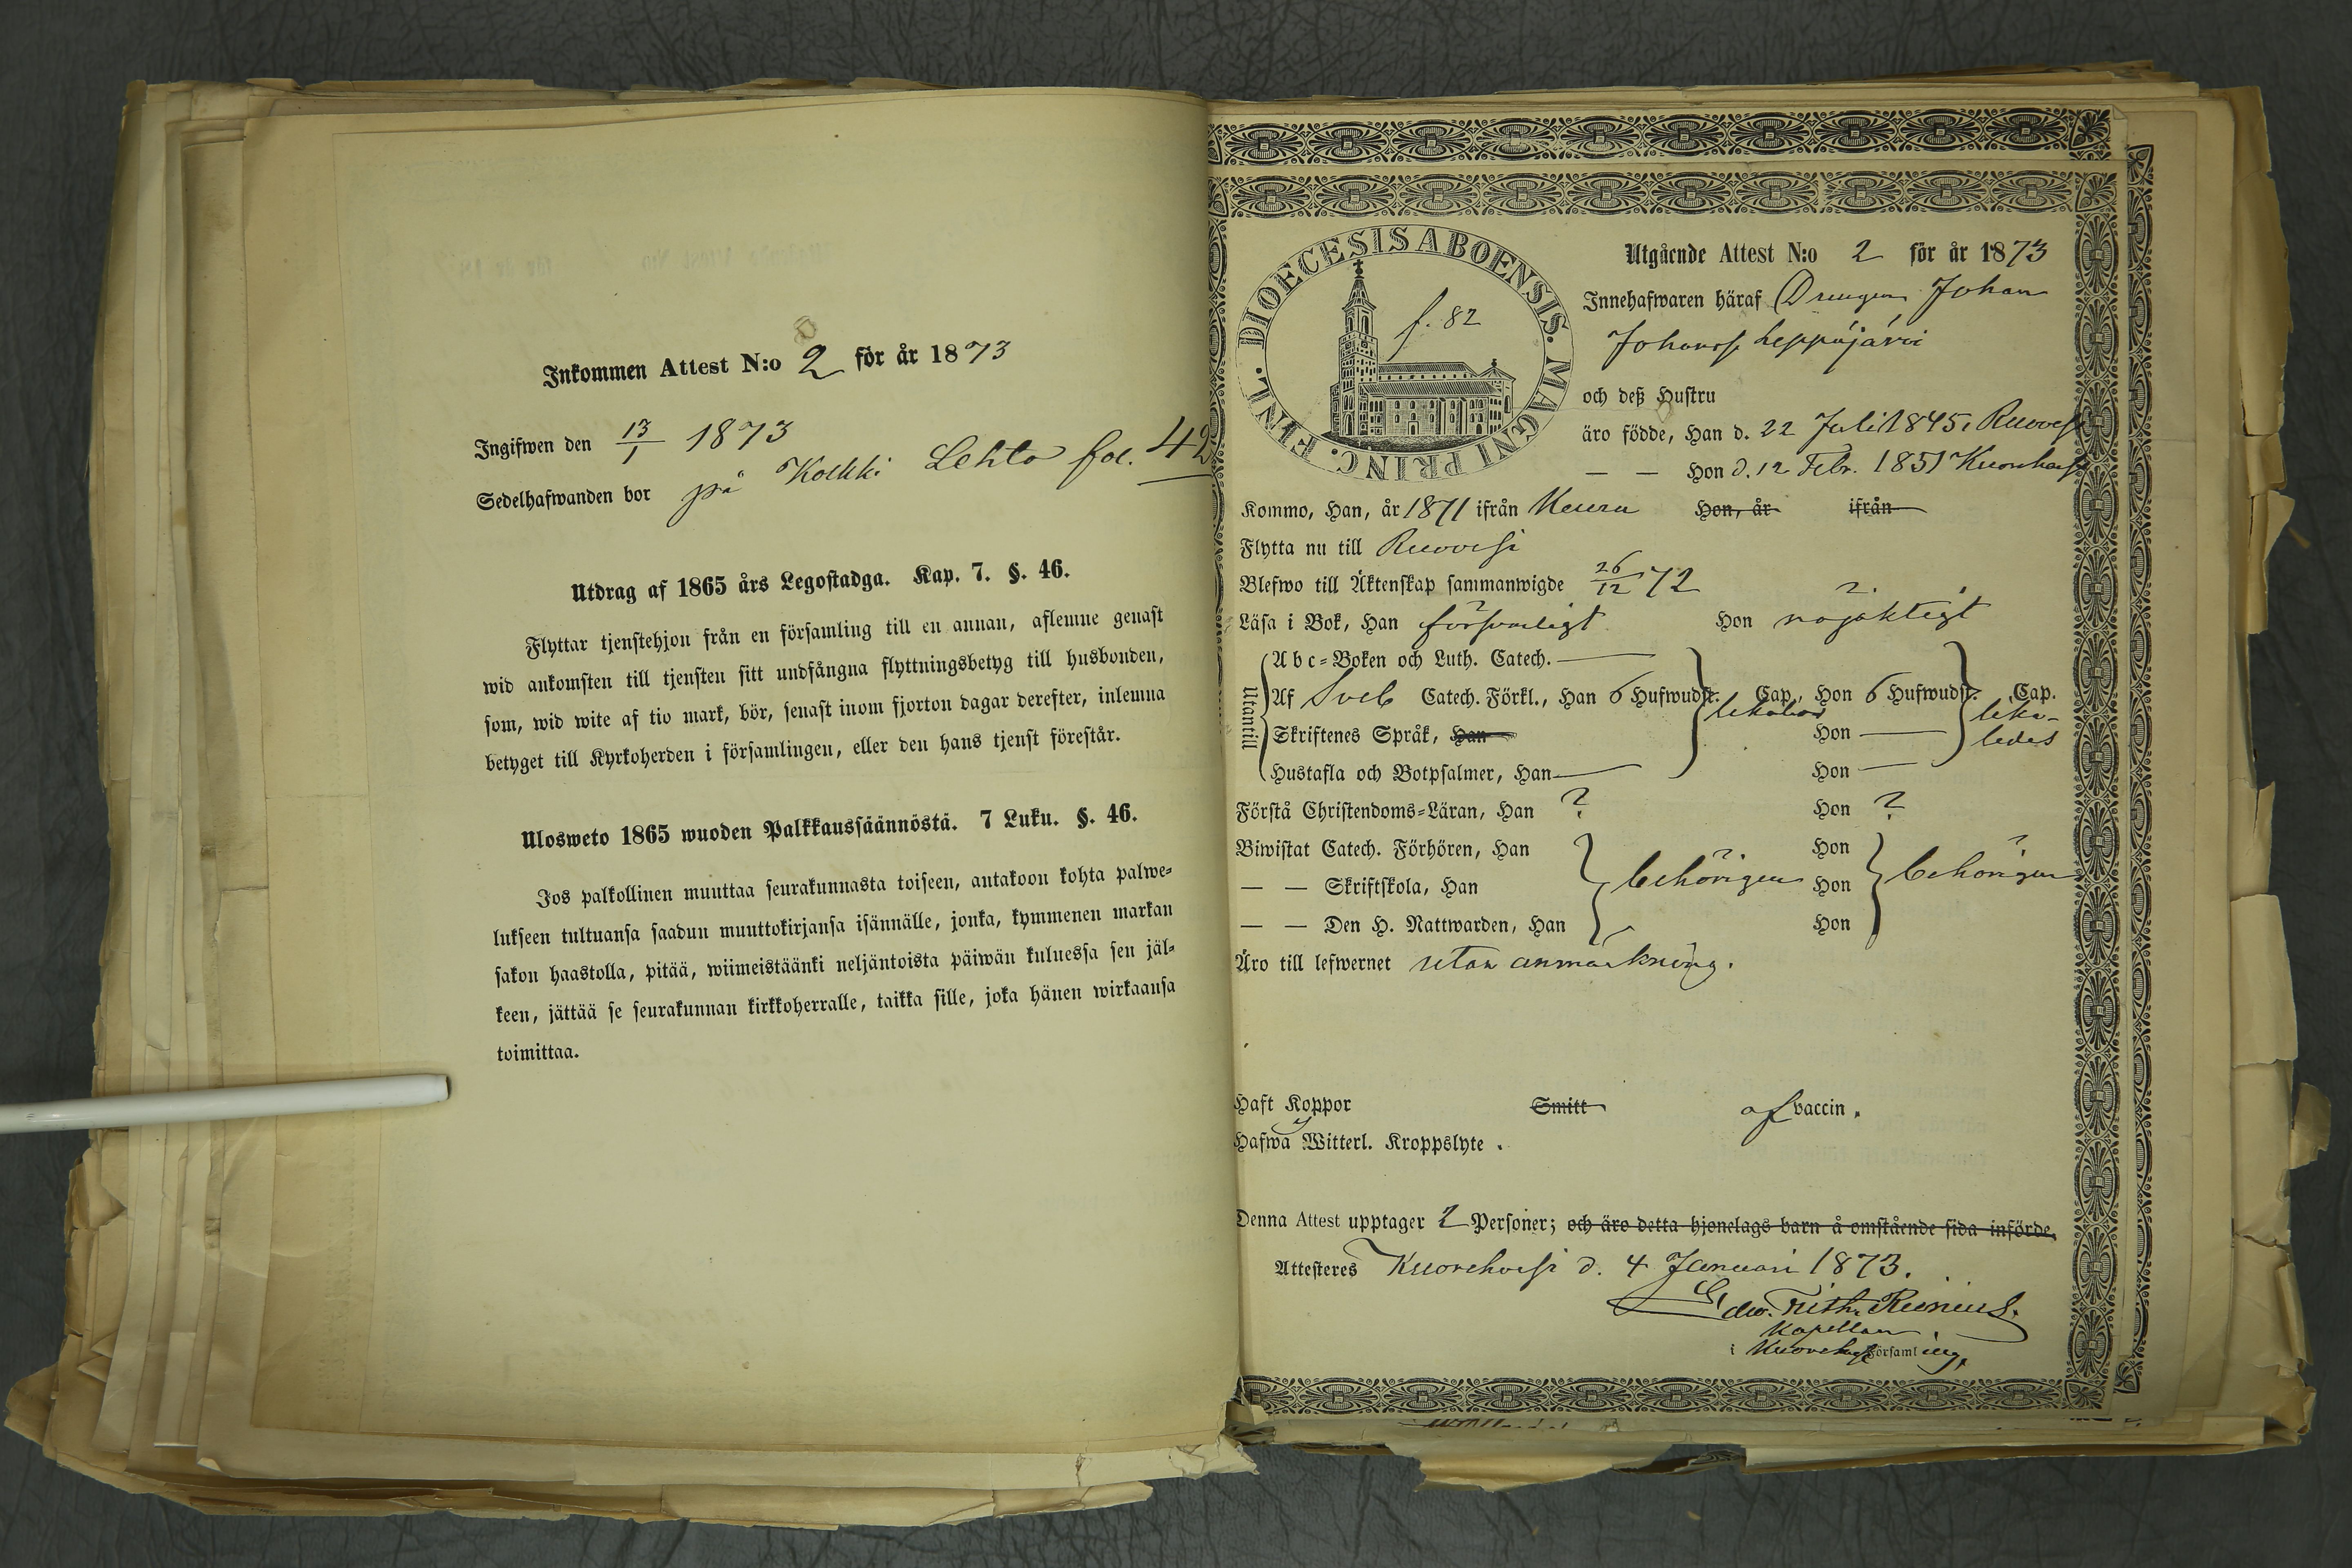 Inkommen Attest N:o 2 för år 1873
Ingifwen den 13/1 1873
Sedelhafwanden bor på Kolkki Lehto fol. 42
Utdrag af 1865 års Legostadga. Kap. 7. §. 46.
Flyttar tjenstehjon från en församling till en annan, aflemne genast
wid ankomsten till tjensten sitt undfångna flyttningsbetyg till husbonden,
som, wid wite af tio mark, bör, senast inom fjorton dagar derefter, inlemna
betyget till Kyrkoherden i församlingen, eller den hans tjenst förestår.
Ulosweto 1865 wuoden Palkkaussäännöstä. 7 Luku. §. 46.
Jos palkollinen muuttaa seurakunnasta toiseen, antakoon kohta palwe-
lukseen tultuansa saadun muuttokirjansa isännälle, jonka, kymmenen markan
sakon haastolla, pitää, wiimeistäänki neljäntoista päiwän kuluessa sen jäl-
keen, jättää se seurakunnan kirkkoherralle, taikka sille, joka hänen wirkaansa
toimittaa.
DIOECESIS ABOENSIS. MAGNI PRINC. FINL.
f. 82
Utgående Attest N:o 2 för år 1873
Innehafwaren häraf Drengen Johan
Johanss. Leppäjärvi
och deß Hustru
äro födde, Han d. 22 Juli 1845, Ruovesi
— — Hon d. 12 Febr. 1851 Kuorehvesi
Kommo, Han, år 1871 ifrån Keuru Hon, år ifrån
Flytta nu till Ruovesi
Blefwo till Äktenskap sammanwigde 26/12 72
Läsa i Bok, Han försvarligt Hon nöjaktigt
Utantill
Abc-Boken och Luth. Catech. —
Af Sveb Catech. Förkl., Han 6 Hufwudst. Cap., Hon 6 Hufwudst. Cap.
likaledes
Skriftenes Språk, Han Hon —
Hustafla och Botpsalmer, Han — Hon —
Förstå Christendoms-Läran, Han ? Hon ?
Biwistat Catech. Förhören, Han Hon
— — Skriftskola, Han behörigen Hon behörigen
— — Den H. Nattwarden, Han Hon
Äro till lefwernet utan anmärkning.
Haft Koppor Smitt af vaccin.
Hafwa ej Witterl. Kroppslyte.
Denna Attest upptager 2 Personer; och äro detta hjonelags barn å omstående sida införde.
Attesteres Kuorehvesi d. 4 Januari 1873.
Edw. Frith. Runius.
Kapellan
i Kuorehvesi Församling,